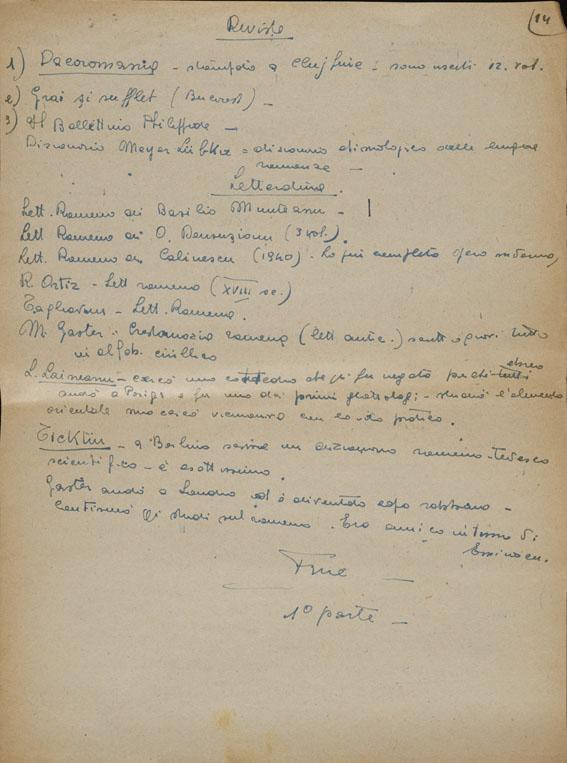 14
Riviste
1) Dacoromania - stampato a Cluj fuie - sono usciti 12. vol.
2) Grai şi sufflet (Bucarest) -
3) Il Bollettino Philippide -
Dizionario Meyer Lübke = dizionario etimologico delle lingue
romanze -
Letteratura.
Lett. Romena di Basilio Munteanu -
Lett Romena di O. Densuzianu (3 vol.).
Lett. Romena di Calinescu (1940) - La più completa opera moderna,
R. Ortiz - Lett romena (XVIII sec.)
Tagliavini - Lett. Romena.
M. Gaster : Crestomazia romena (lett antic.) testi
in alfab. cirillico
ebreo
L. Laineanu - cercò una cattedra che gli fu negata perchè
andò a Parigi e fu uno dei primi glottologi; - studiò l'elemento
orientale ma cercò vicinanza con la vita pratica.
Ticktin - a Berlino scrisse un dizionario romeno-tedesco
scientifico - è esattissimo.
Gaster andò a Londra ed è diventato capo rabbino -
Continuò gli studi sul romeno. Era amico intimo di
Eminescu.
Fine
1º parte -